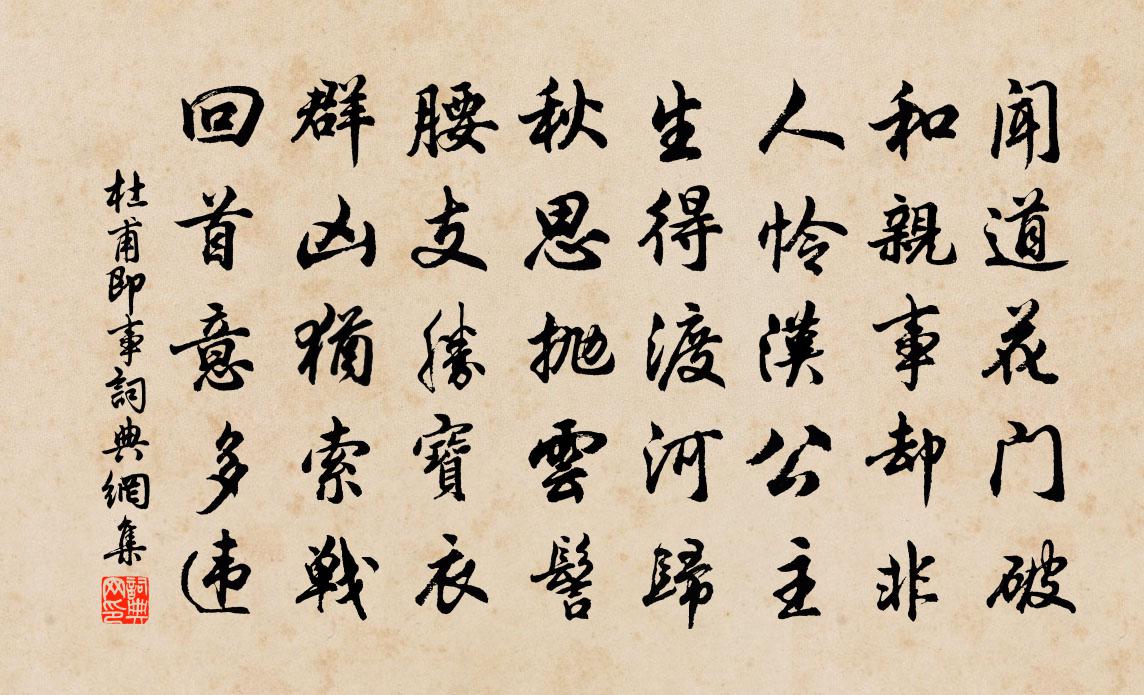 闻道花门破
和親事却非
人怜漢公主
生得渡河歸
秋思抛雲髻
腰支勝寶衣
群凶猶索戰
回首意多违
杜甫即事詞典網集
詞典网印